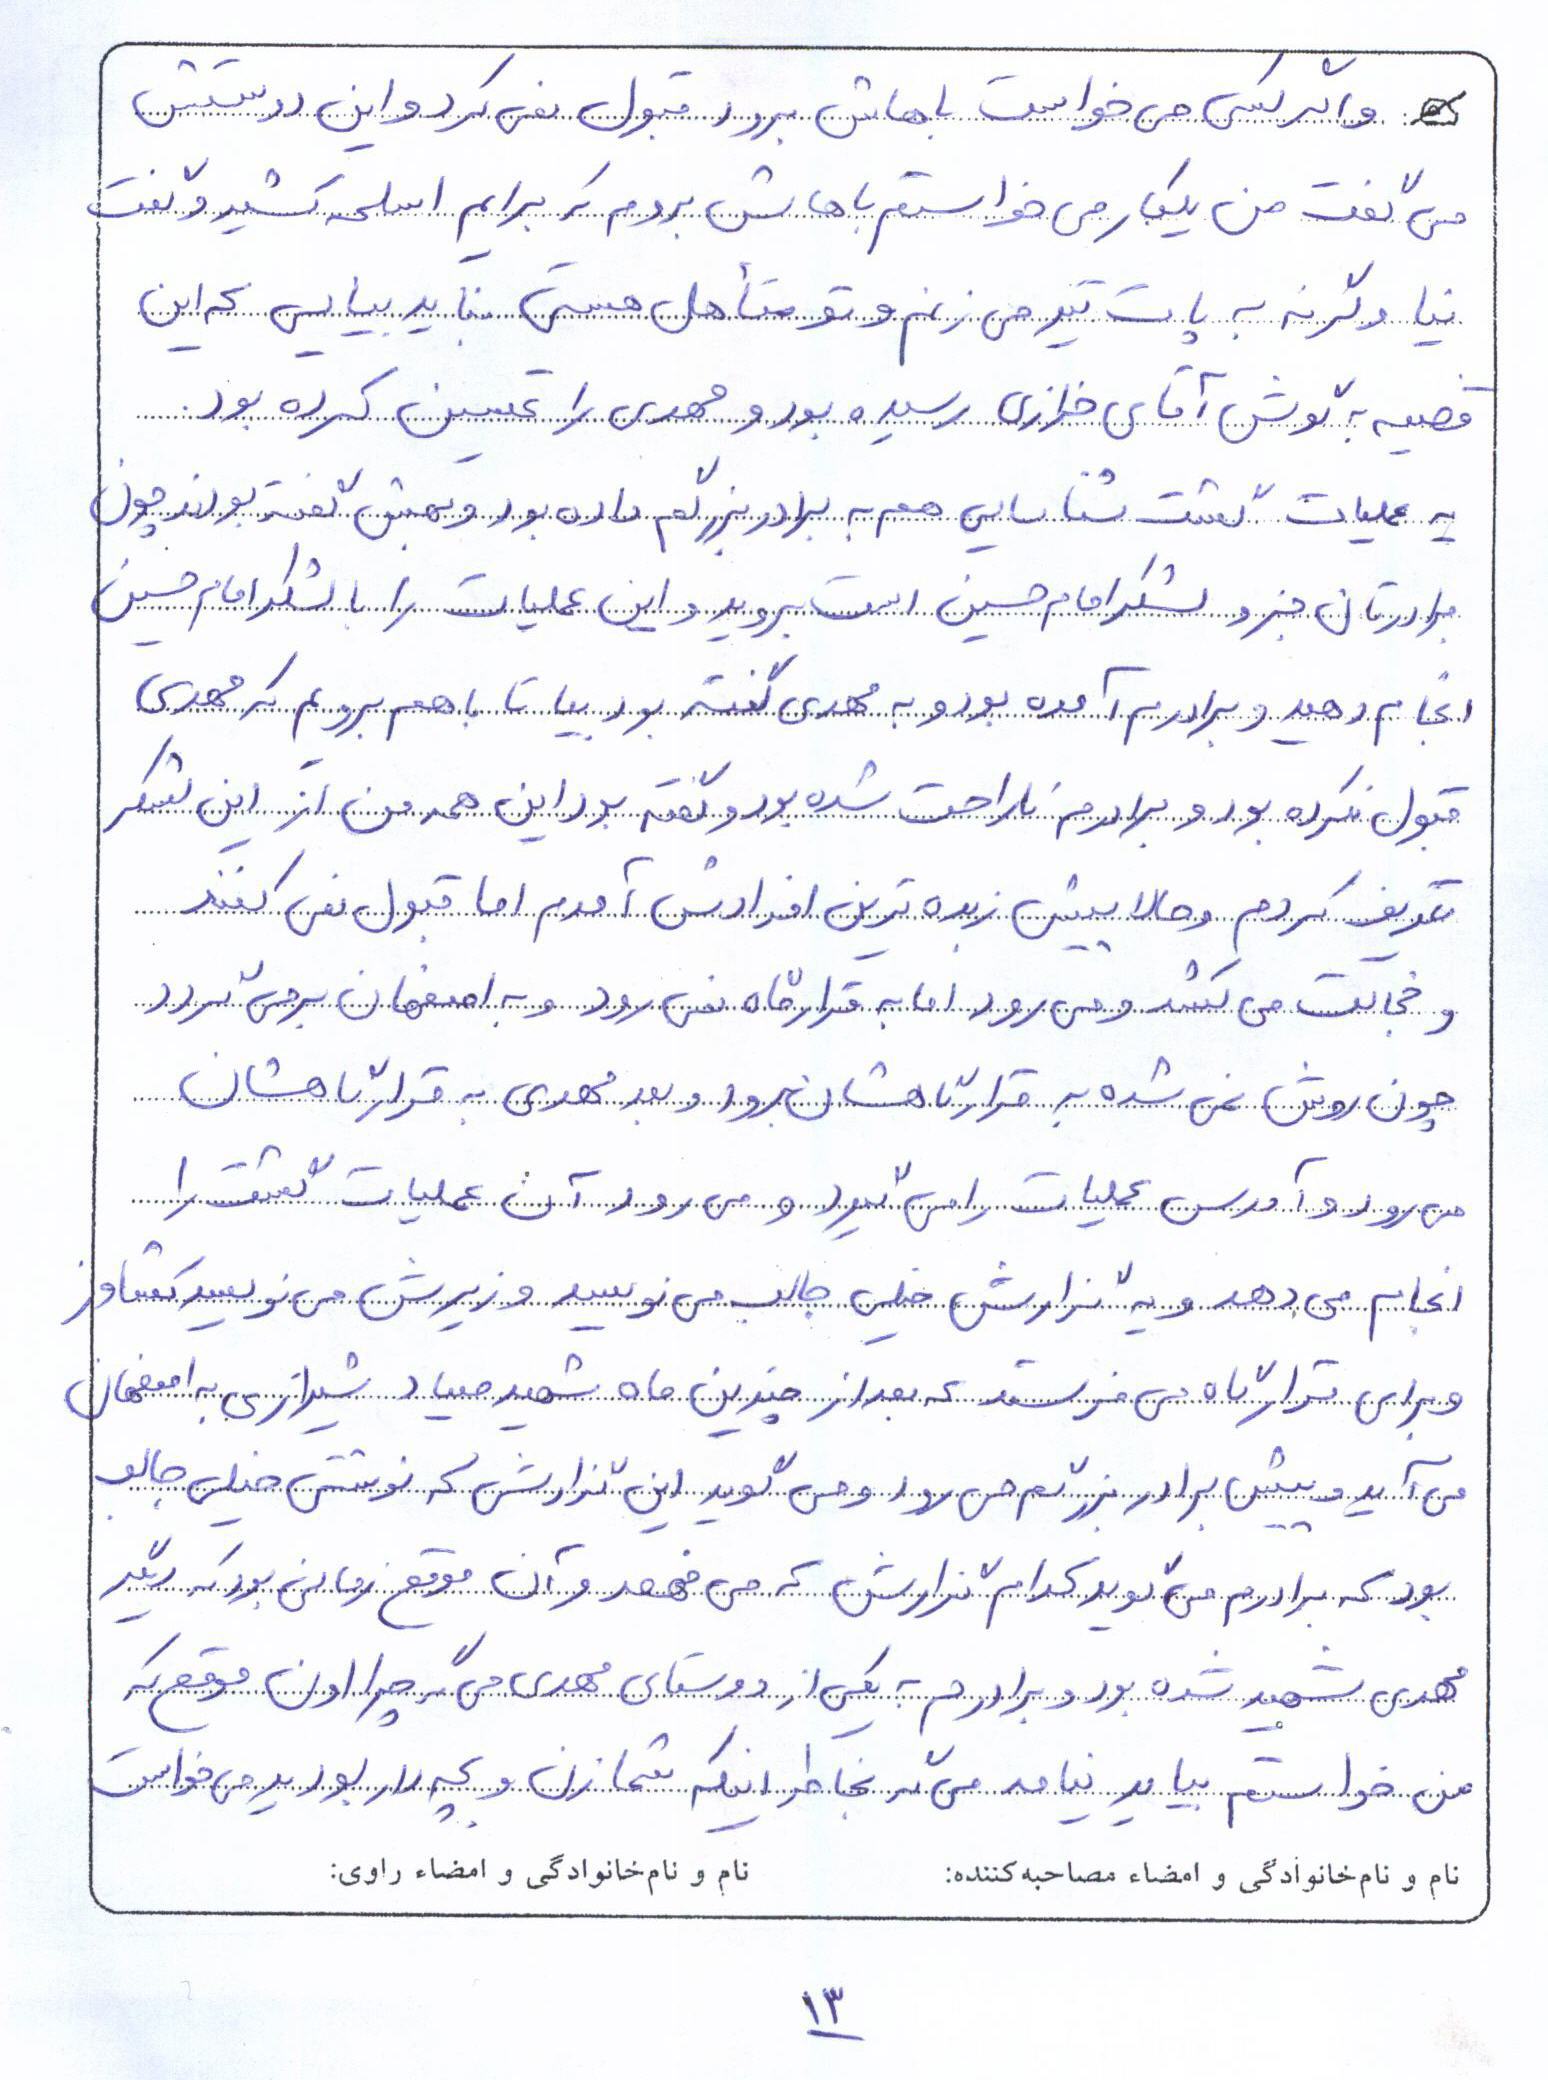 و اگر کسی می خواست باهاش برود قبول نمی کرد و این دوستش
می گفت من یکبار می خواستم باهاش بروم که برایم اسلحه کشید و گفت
نیا وگرنه به پات تیر می زنم و تو متأهل هستی نباید بیایی که این
قضیه به گوش آقای خرازی رسیده بود و مهدی را تحسین کرده بود.
یه عملیات گشت شناسایی هم به برادر بزرگم داده بود و بهش گفته بودند چون
برادرتان جزو لشکر امام حسین است بروید و این عملیات را با لشکر امام حسین
انجام دهید و برادرم آمده بود و به مهدی گفته بود بیا تا با هم برویم که مهدی
قبول نکرده بود و برادرم ناراحت شده بود و گفته بود این همه من از این لشکر
تعریف کردم و حالا پیش زبده ترین افرادش آمدم اما قبول نمی کنند
و خجالت می کشد و می رود اما به قرارگاه نمی رود و به اصفهان برمی گردد
چون روش نمی شده به قرارگاهشان برود و بعد مهدی به قرارگاهشان
می رود و آدرس عملیات را می گیرد و می رود آن عملیات گشت را
انجام می دهد و یه گزارش خیلی جالب می نویسد و زیرش می نویسد کشاورز
و برای قرارگاه می فرستد که بعد از چندین ماه شهید صیاد شیرازی به اصفهان
می آید و پیش برادر بزرگم می رود و می گوید این گزارش که نوشتی خیلی جالب
بود که برادرم می گوید کدام گزارش که می فهمد و آن موقع زمانی بود که دیگر
مهدی شهید شده بود و برادرم به یکی از دوستای مهدی می گه چرا اون موقع که
من خواستم بیاید نیامد می گه بخاطر اینکه شما زن و بچه دار بودید می خواست
نام و نام خانوادگی و امضاء مصاحبه کننده: نام و نام خانوادگی و امضاء راوی:
۱۳